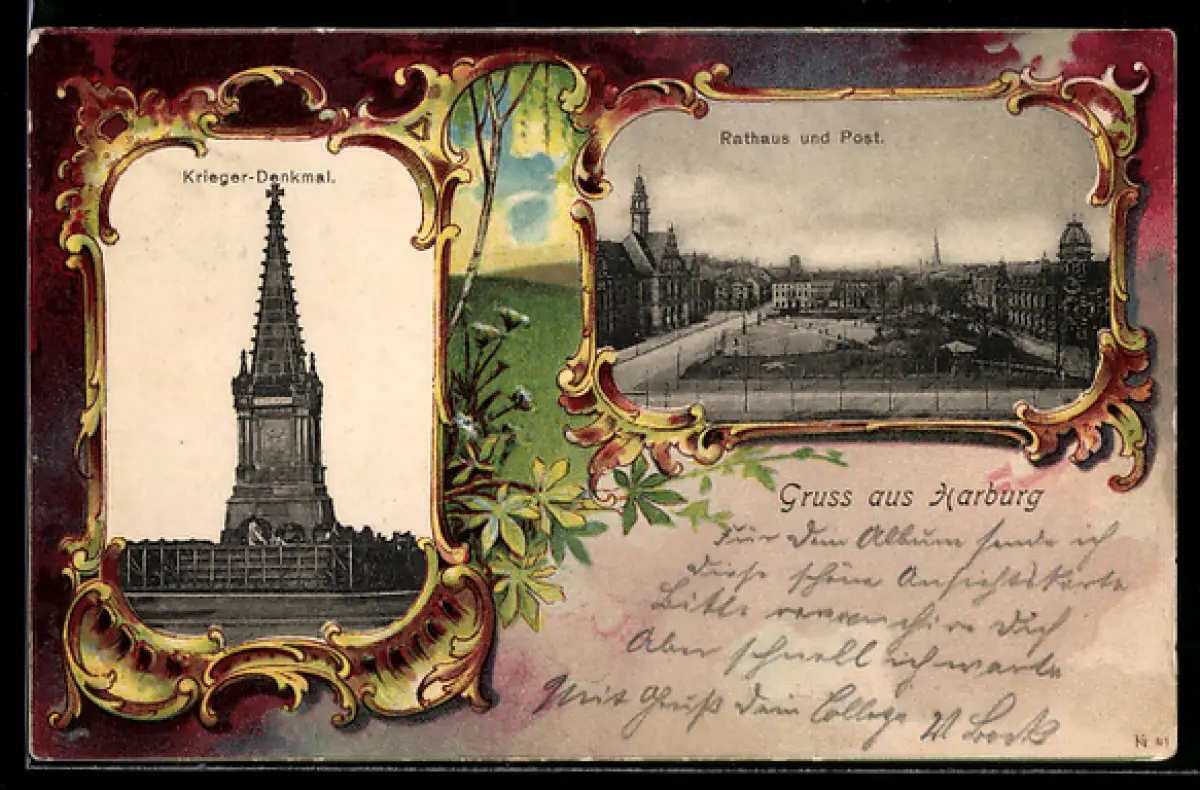 Krieger-Denkmal.
Rathaus und Post.
Gruss aus Harburg
Für dem Album sende ich
diese schöne Ansichtskarte
Bitte revanchire dich
Aber schnell ich warte
Mit Gruß dein College W Bock